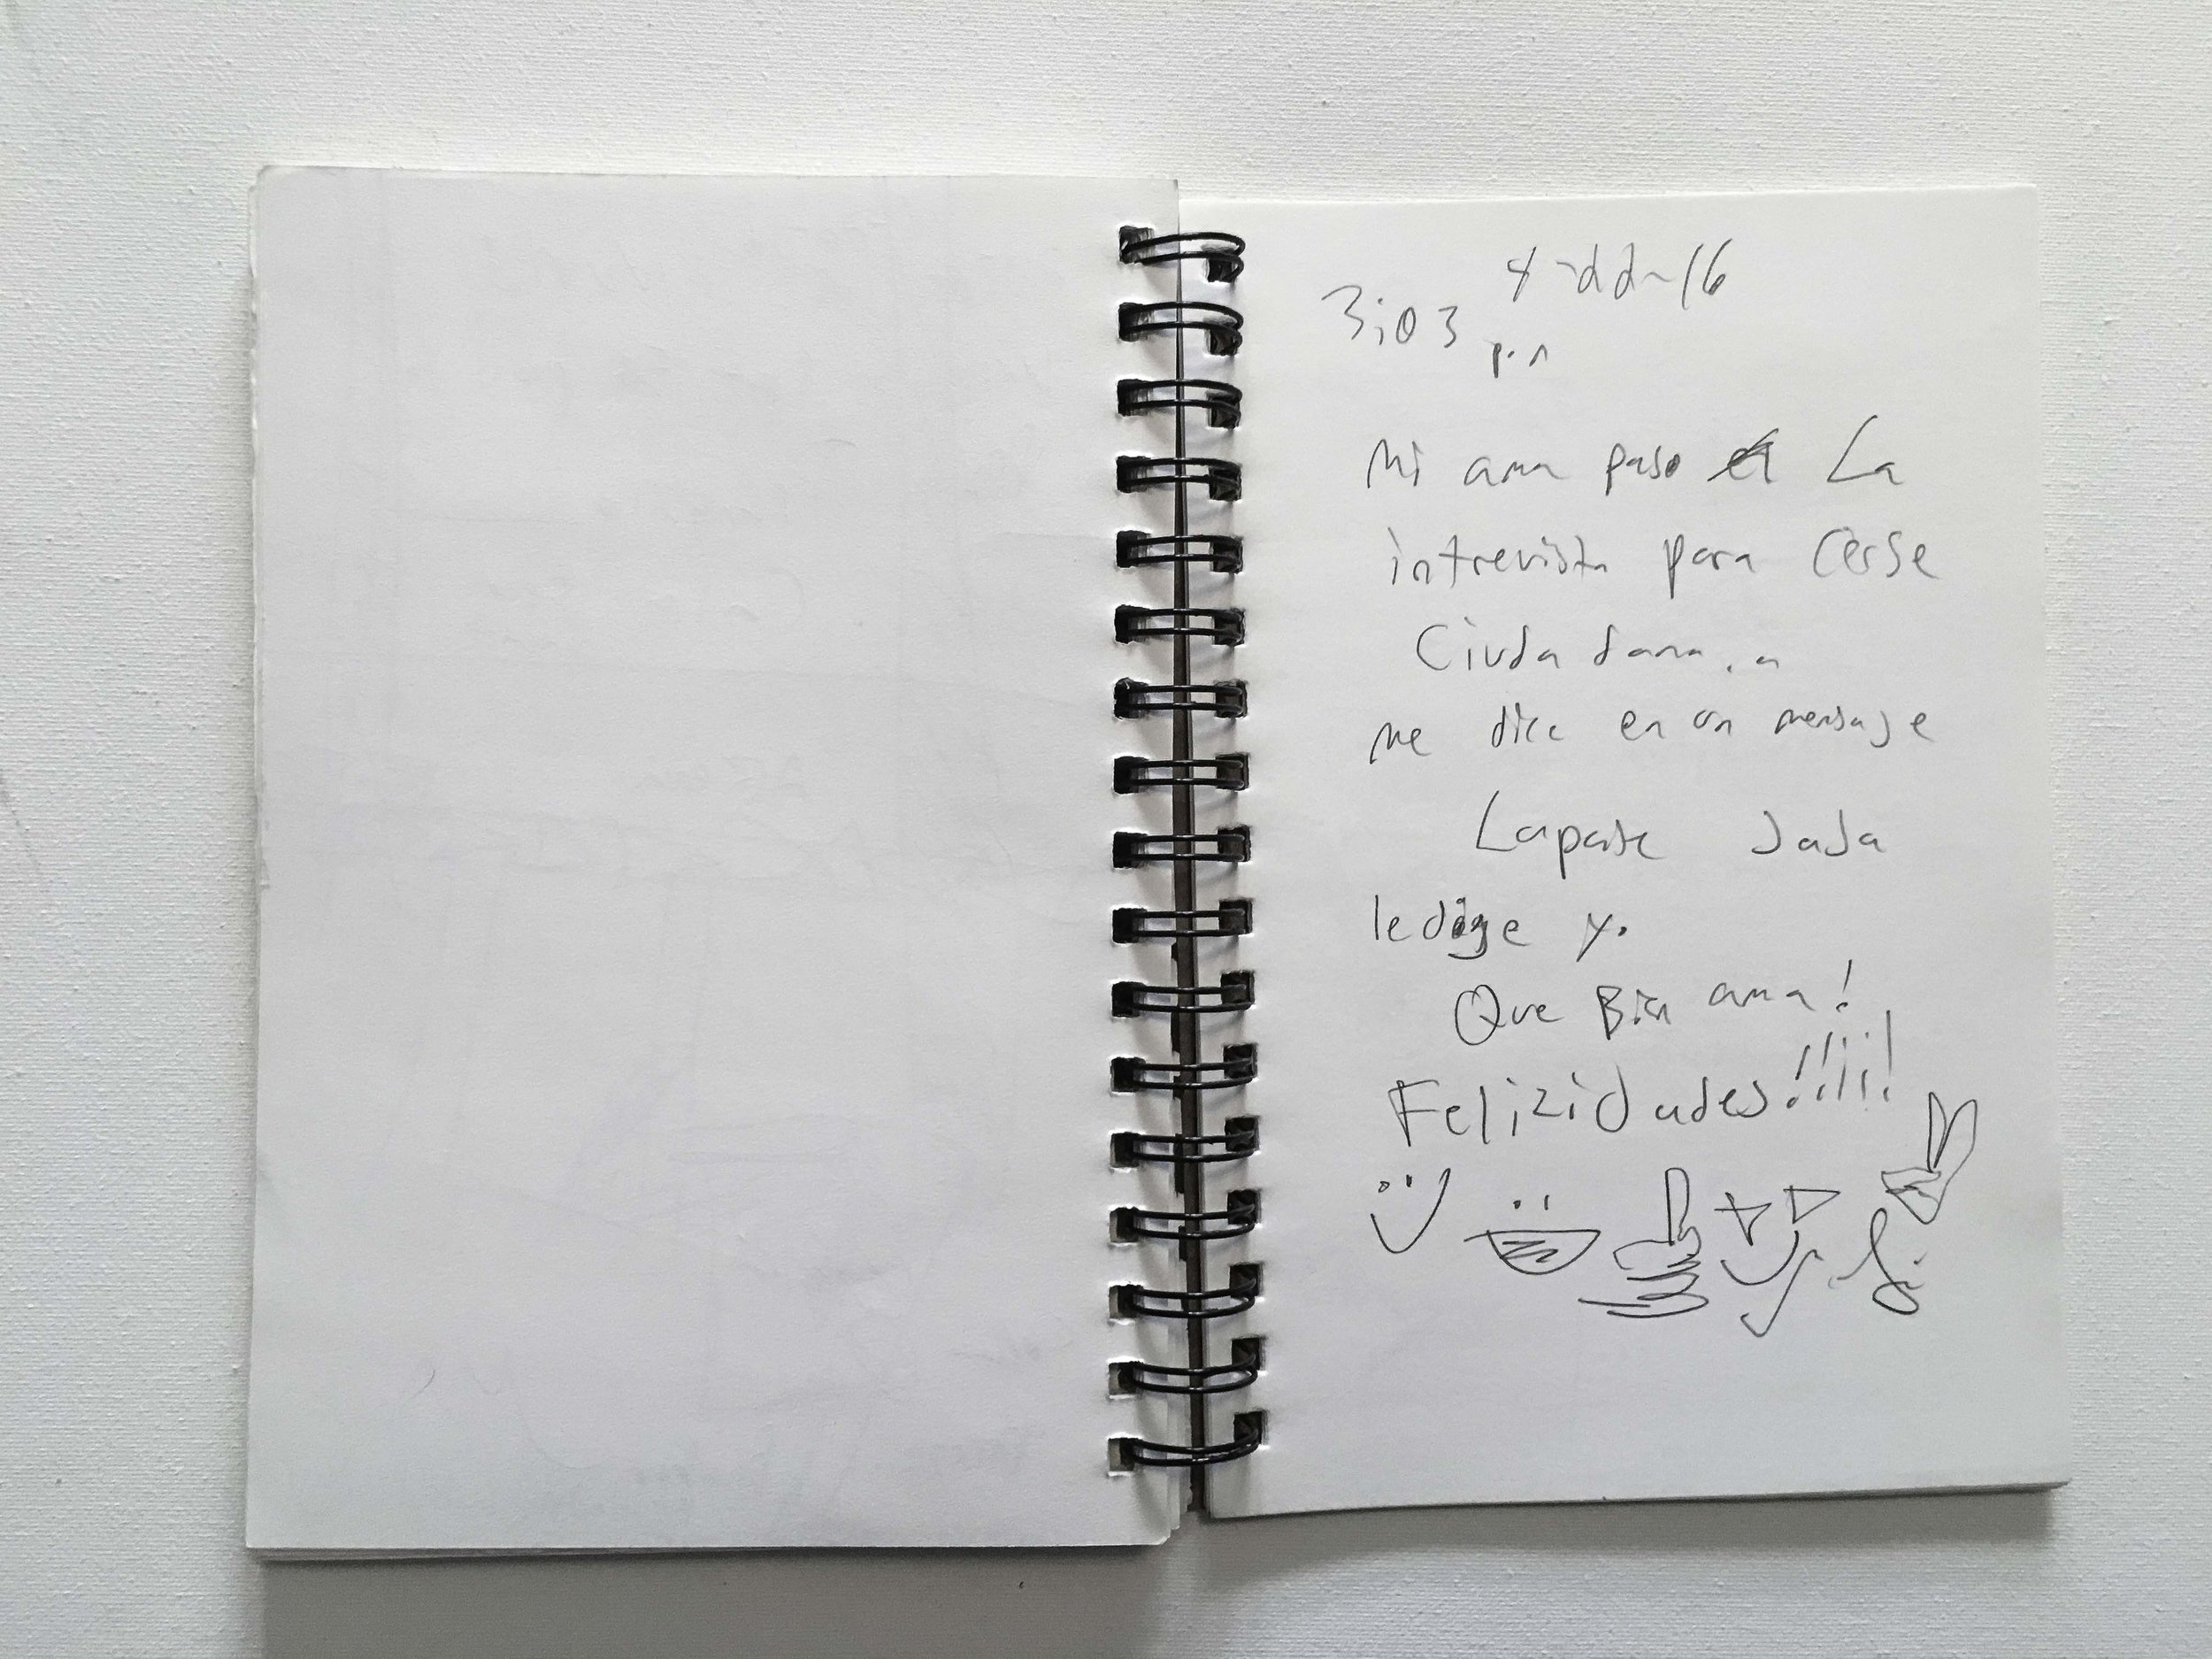 4-22-16
3:03 pm
Mi ama paso La
intrevista para Cerse
Ciudadana.
me dice en un mensaje
Lapase JaJa
ledige yo
Que Bien ama!
Felizidades!!!!!